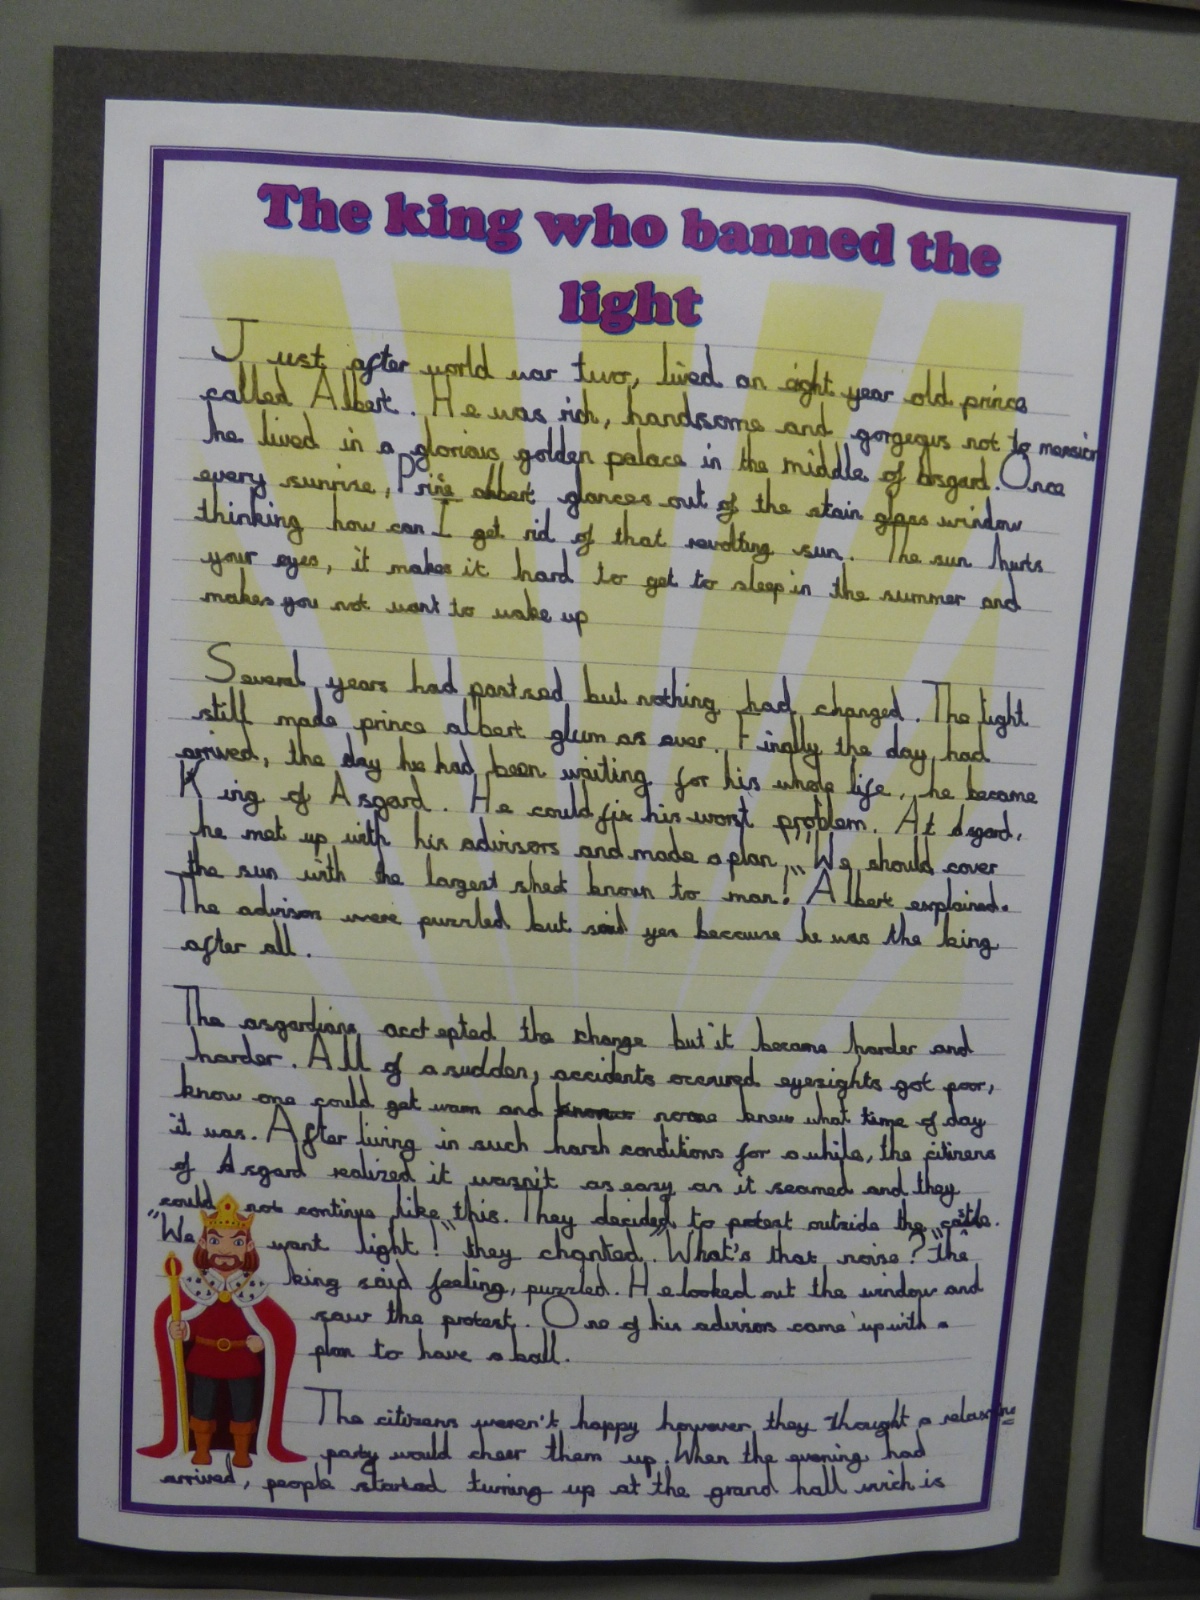 The king who banned the
light
Just after world war two, lived an eight year old prince
called Albert. He was rich, handsome and gorgeous not to mension
he lived in a glorious golden palace in the middle of Asgard. Once
every sunrise, Prine albert glances out of the stain glass window
thinking how can I get rid of that revolting sun. The sun hurts
your eyes, it makes it hard to get to sleep in the summer and
makes you not want to wake up
Several years had past but nothing had changed. The light
still made prince albert glum as ever. Finally the day had
arrived, the day he had been waiting for his whole life, he became
King of Asgard. He could fix his worst problem. At Asgard,
he met up with his advisors and made a plan, "We should cover
the sun with the largest sheet known to man!" Albert explained.
The advisors were puzzled but said yes because he was the king
after all.
The asgardians acctepted the change but it became harder and
harder. All of a sudden, accidents occured eyesights got poor,
know one could get warm and noone knew what time of day
it was. After living in such harsh conditions for a while, the citizens
of Asgard realized it wasn't as easy as it seamed and they
could not continue like this. They decided to protest outside the castle.
"We want light!" they chanted. "What's that noise?" the
king said feeling, puzzled. He looked out the window and
saw the protest. One of his advisors came up with a
plan to have a ball.
The citizens weren't happy however they thought a relaxing
party would cheer them up. When the evening had
arrived, people started turning up at the grand hall wich is